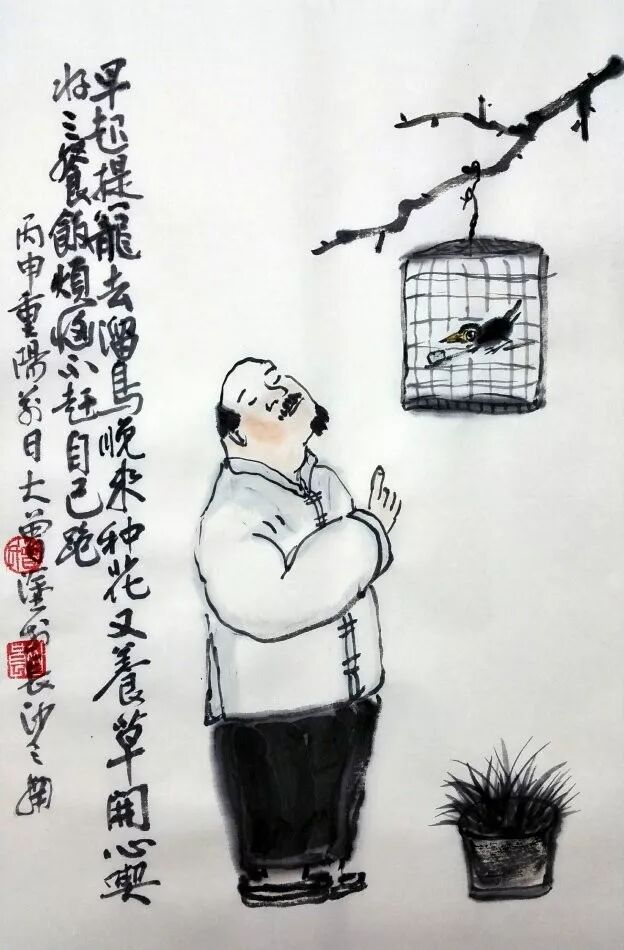 早起提籠去溜鳥晚来种花又養草開心喫
好三餐飯煩惱不赶自己跑
丙申重陽前日大曾塗於長沙之